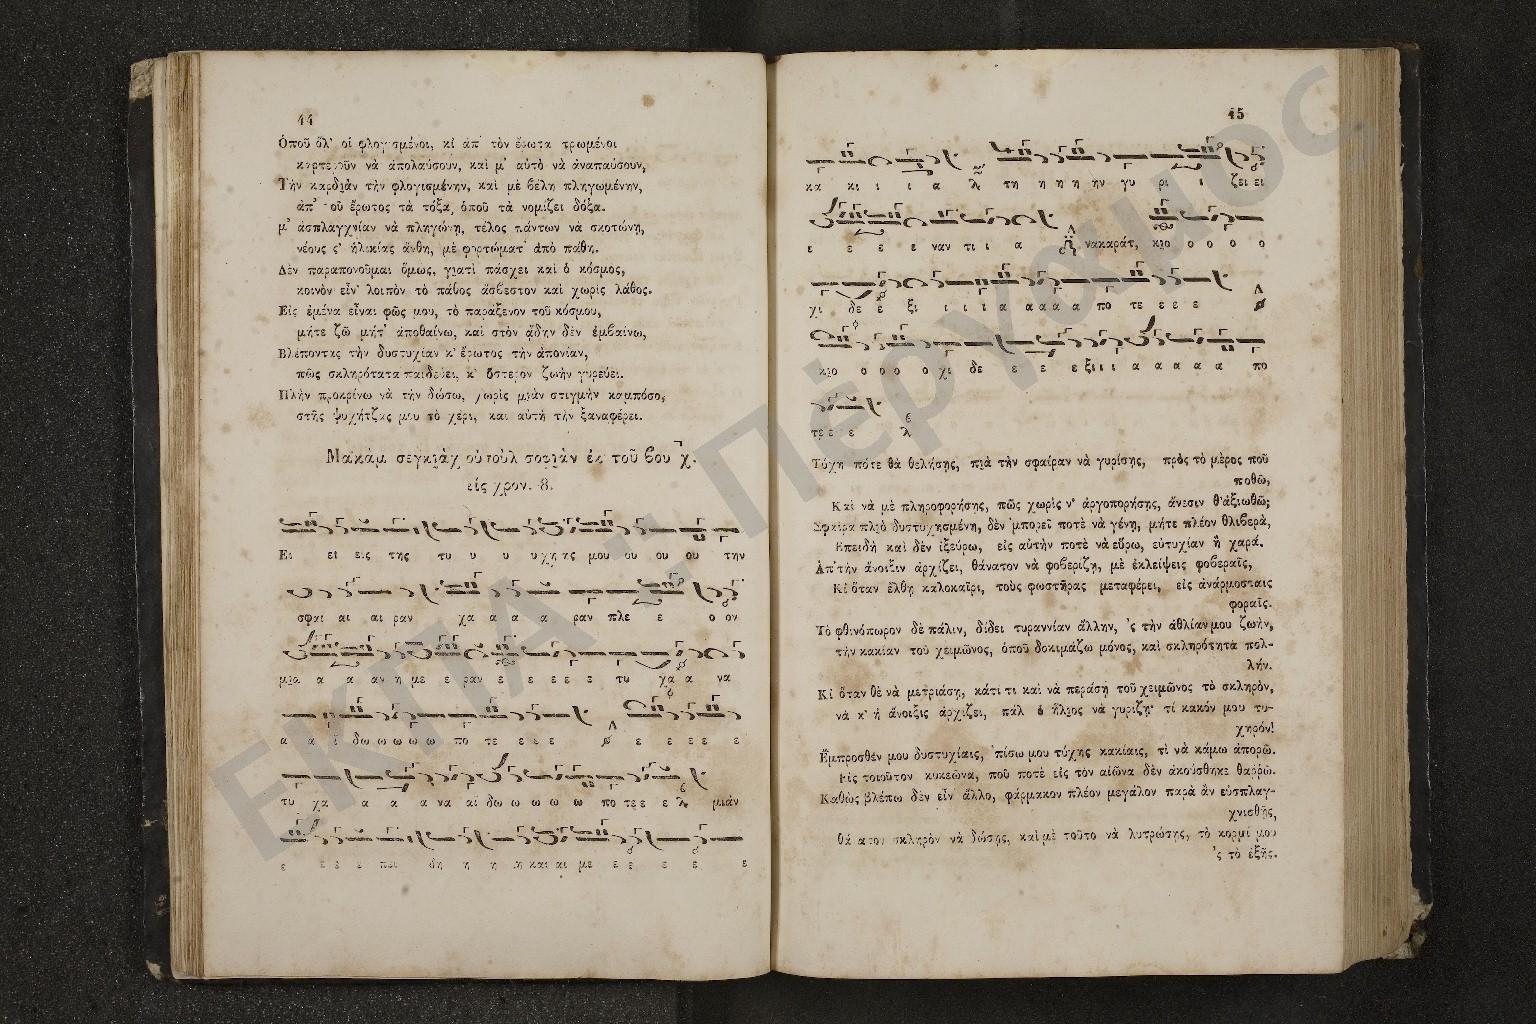 44
Ὁποῦ ὅλ' οἱ φλογισμένοι, κἰ ἀπ' τὸν ἔρωτα τρωμένοι
καρτεροῦν νὰ ἀπολαύσουν, καὶ μ' αὐτὸ νὰ ἀναπαύσουν,
Τὴν καρδιὰν τὴν φλογισμένην, καὶ μὲ βέλη πληγωμένην,
ἀπ' τοῦ ἔρωτος τὰ τόξα, ὁποῦ τὰ νομίζει δόξα.
μ' ἀσπλαγχνίαν νὰ πληγώνῃ, τέλος πάντων νὰ σκοτώνῃ,
νέους ς' ἡλικίας ἄνθη, μὲ φορτώματ' ἀπὸ πάθη.
Δὲν παραπονοῦμαι ὅμως, γιατὶ πάσχει καὶ ὁ κόσμος,
κοινὸν εἶν' λοιπὸν τὸ πάθος ἄσβεστον καὶ χωρὶς λάθος.
Εἰς ἐμένα εἶναι φῶς μου, τὸ παράξενον τοῦ κόσμου,
μήτε ζῶ μήτ' ἀποθαίνω, καὶ στὸν ᾅδην δὲν ἐμβαίνω,
Βλέποντας τὴν δυστυχίαν κ' ἔρωτος τὴν ἀπονίαν,
πῶς σκληρότατα παιδεύει, κ' ὕστερον ζωὴν γυρεύει.
Πλὴν προκρίνω νὰ τὴν δώσω, χωρὶς μιὰν στιγμὴν καμπόσο,
στῆς ψυχήτζας μου τὸ χέρι, καὶ αὐτὴ τὴν ξαναφέρει.
Μακὰμ σεγκιὰχ οὐσοὺλ σοφιὰν ἐκ τοῦ βου χ.
εἰς χρον. 8.
Ει ει εις της τυ υ υ υχης μου ου ου ου την
σφαι αι αι ραν χα α α α ραν πλε ε ο ον
μια α α αν η με ε ραν ε ε ε ε ε τυ χα α να
α α ι δω ω ω ω ω πο τε ε ε ε ε ε ε ε ε
τυ χα α α α να αι δω ω ω ω ω πο τε ε ε ε μιὰν
ε ε ε ε πει δη η η η και αι με ε ε ε ε ε
45
κα κι ι ι ι α τη η η η ην γυ ρι ι ζει ει
ε ε ε ε ναν τι ι α νακαράτ, κιο ο ο ο ο
χι δε ε ξι ι ι ι α α α α α πο τε ε ε ε
κιο ο ο ο ο χι δε ε ε ε εξι ι ι α α α α α πο
τε ε ε ε
Τύχη πότε θὰ θελήσης, πιὰ τὴν σφαίραν νὰ γυρίσης, πρὸς τὸ μέρος ποῦ
ποθῶ,
Καὶ νὰ μὲ πληροφορήσης, πῶς χωρὶς ν' ἀργοπορήσης, ἄνεσιν θ'ἀξιωθῶ;
Σφαίρα πλιὸ δυστυχησμένη, δὲν 'μπορεῖ ποτὲ νὰ γένῃ, μήτε πλέον θλιβερὰ,
Ἐπειδὴ καὶ δὲν ἰξεύρω, εἰς αὐτὴν ποτὲ νὰ εὕρω, εὐτυχίαν ἢ χαρά.
Ἀπ'τὴν ἄνοιξιν ἀρχίζει, θάνατον νὰ φοβερίζῃ, μὲ ἐκλείψεις φοβεραῖς,
Κἰ ὅταν ἔλθῃ καλοκαῖρι, τοὺς φωστῆρας μεταφέρει, εἰς ἀνάρμοσταις
φοραῖς.
Τὸ φθινόπωρον δὲ πάλιν, δίδει τυραννίαν ἄλλην, 'ς τὴν ἀθλίαν μου ζωὴν,
τὴν κακίαν τοῦ χειμῶνος, ὁποῦ δοκιμάζω μόνος, καὶ σκληρότητα πολ-
λήν.
Κἰ ὅταν θὲ νὰ μετριάσῃ, κάτι τι καὶ νὰ περάσῃ τοῦ χειμῶνος τὸ σκληρὸν,
νὰ κ' ἡ ἄνοιξις ἀρχίζει, πάλ' ὁ ἥλιος νὰ γυρίζῃ· τί κακόν μου τυ-
χηρόν!
Ἔμπροσθέν μου δυστυχίαις, 'πίσω μου τύχης κακίαις, τί νὰ κάμω ἀπορῶ.
Εἰς τοιοῦτον κυκεῶνα, ποῦ ποτὲ εἰς τὸν αἰῶνα δὲν ἀκούσθηκε θαῤῥῶ.
Καθὼς βλέπω δὲν εἶν' ἄλλο, φάρμακον πλέον μεγάλον παρὰ ἂν εὐσπλαγ-
χνισθῇς,
θάνατον σκληρὸν νὰ δώσῃς, καὶ μὲ τοῦτο νὰ λυτρώσῃς, τὸ κορμί μου
'ς τὸ ἑξῆς.